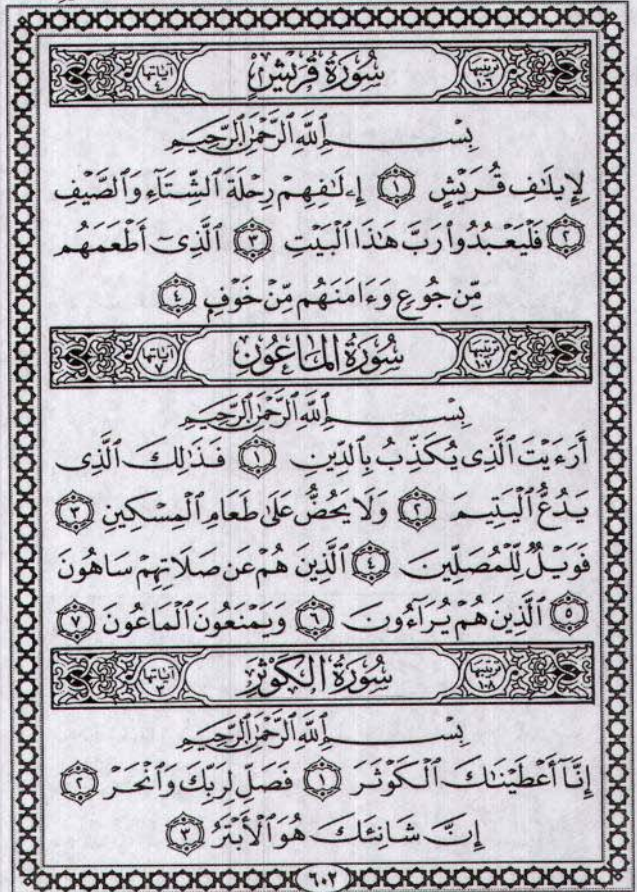 ترتيبها ١٠٦ سُورَةُ قُرَيْشٍ آياتها ٤
بِسْمِ اللَّهِ الرَّحْمَٰنِ الرَّحِيمِ
لِإِيلَٰفِ قُرَيْشٍ ١ إِۦلَٰفِهِمْ رِحْلَةَ ٱلشِّتَآءِ وَٱلصَّيْفِ
٢ فَلْيَعْبُدُوا۟ رَبَّ هَٰذَا ٱلْبَيْتِ ٣ ٱلَّذِىٓ أَطْعَمَهُم
مِّن جُوعٍ وَءَامَنَهُم مِّنْ خَوْفٍ ٤
ترتيبها ١٠٧ سُورَةُ المَاعُونِ آياتها ٧
بِسْمِ اللَّهِ الرَّحْمَٰنِ الرَّحِيمِ
أَرَءَيْتَ ٱلَّذِى يُكَذِّبُ بِٱلدِّينِ ١ فَذَٰلِكَ ٱلَّذِى
يَدُعُّ ٱلْيَتِيمَ ٢ وَلَا يَحُضُّ عَلَىٰ طَعَامِ ٱلْمِسْكِينِ ٣
فَوَيْلٌ لِّلْمُصَلِّينَ ٤ ٱلَّذِينَ هُمْ عَن صَلَاتِهِمْ سَاهُونَ
٥ ٱلَّذِينَ هُمْ يُرَآءُونَ ٦ وَيَمْنَعُونَ ٱلْمَاعُونَ ٧
ترتيبها ١٠٨ سُورَةُ الكَوْثَرِ آياتها ٣
بِسْمِ اللَّهِ الرَّحْمَٰنِ الرَّحِيمِ
إِنَّآ أَعْطَيْنَٰكَ ٱلْكَوْثَرَ ١ فَصَلِّ لِرَبِّكَ وَٱنْحَرْ ٢
إِنَّ شَانِئَكَ هُوَ ٱلْأَبْتَرُ ٣
٦٠٢